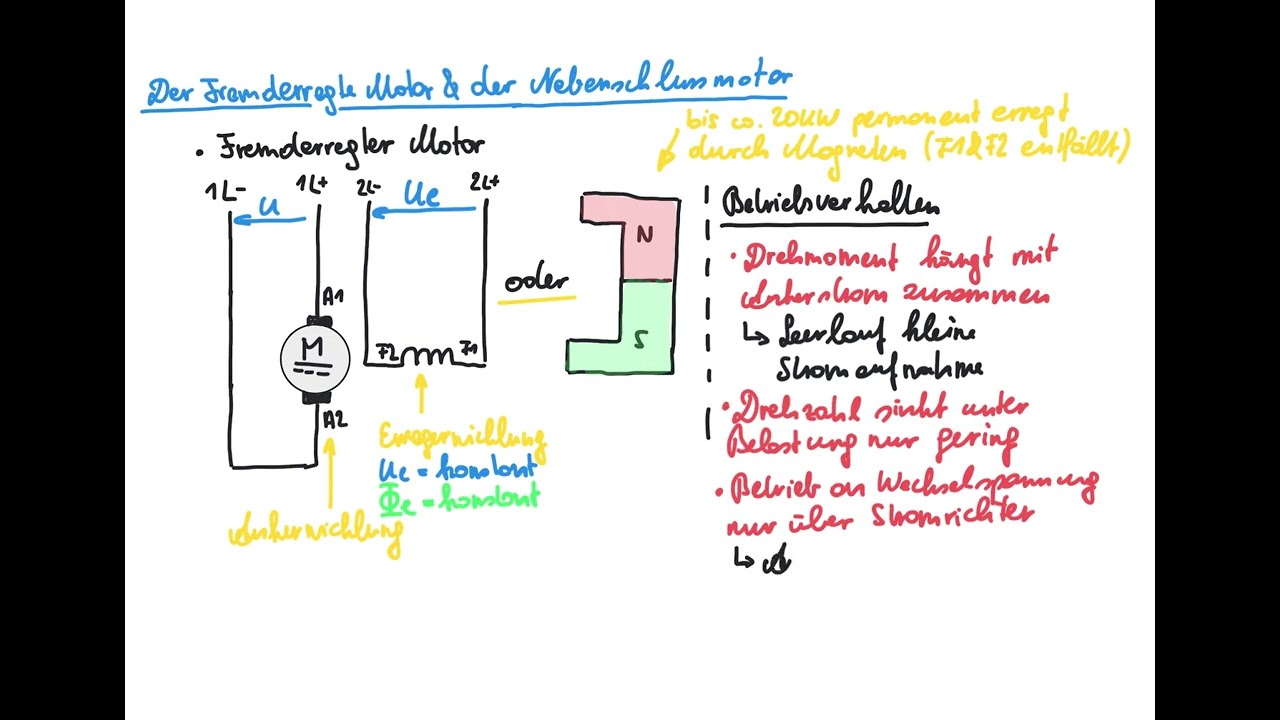 Der Fremderregte Motor & der Nebenschlussmotor
bis ca. 20kW permanent erregt
durch Magneten (F1&F2 entfällt)
• Fremderregter Motor
1L- 1L+ 2L- 2L+
U Ue
A1
M
A2
F2 F1
oder
N
S
Erregerwicklung
Ue = konstant
Φe = konstant
Ankerwicklung
Betriebsverhalten
• Drehmoment hängt mit
Ankerstrom zusammen
↳ Leerlauf kleine
Stromaufnahme
• Drehzahl sinkt unter
Belastung nur gering
• Betrieb an Wechselspannung
nur über Stromrichter
↳ A